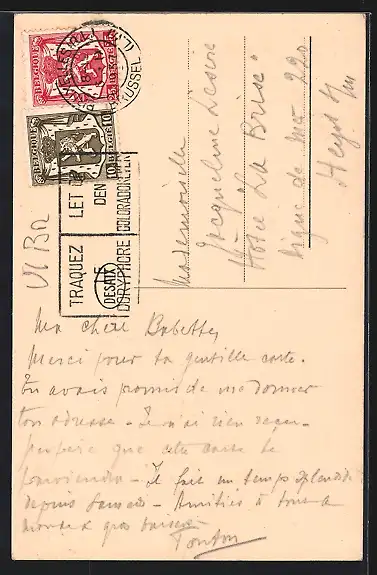 BELGIQUE BELGIE
BELGIQUE BELGIE
10
TRAQUEZ LE DORYPHORE
LET OP DEN COLORADOKEVER
DESAIX
Mademoiselle
Jacqueline
Hotel "La Brise"
Digue de Mer 220
Heyst s/m
Ma chère Babette,
Merci pour ta gentille carte.
Tu avais promis de me donner
ton adresse - Je n'ai rien reçu -
j'espère que cette carte te
parviendra - Il fait un temps splendide
depuis Samedi - Amitiés à tous
gros baisers
Tonton